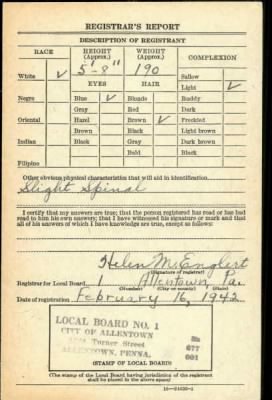 REGISTRAR'S REPORT
DESCRIPTION OF REGISTRANT
RACE HEIGHT (Approx.) WEIGHT (Approx.) COMPLEXION
White ✓ 5'-8" 190 Sallow
EYES HAIR Light ✓
Negro Blue ✓ Blonde Ruddy
Gray Red Dark
Oriental Hazel Brown ✓ Freckled
Brown Black Light brown
Indian Black Gray Dark brown
Bald Black
Filipino
Other obvious physical characteristics that will aid in identification
Slight Spinal
I certify that my answers are true; that the person registered has read or has had
read to him his own answers; that I have witnessed his signature or mark and that
all of his answers of which I have knowledge are true, except as follows:
Helen M. Englert
(Signature of registrar)
Registrar for Local Board 1 Allentown Pa.
(Number) (City or county) (State)
Date of registration February 16, 1942
LOCAL BOARD NO. 1
CITY OF ALLENTOWN
Turner Street
ALLENTOWN, PENNA.
077
001
(STAMP OF LOCAL BOARD)
(The stamp of the Local Board having jurisdiction of the registrant
shall be placed in the above space)